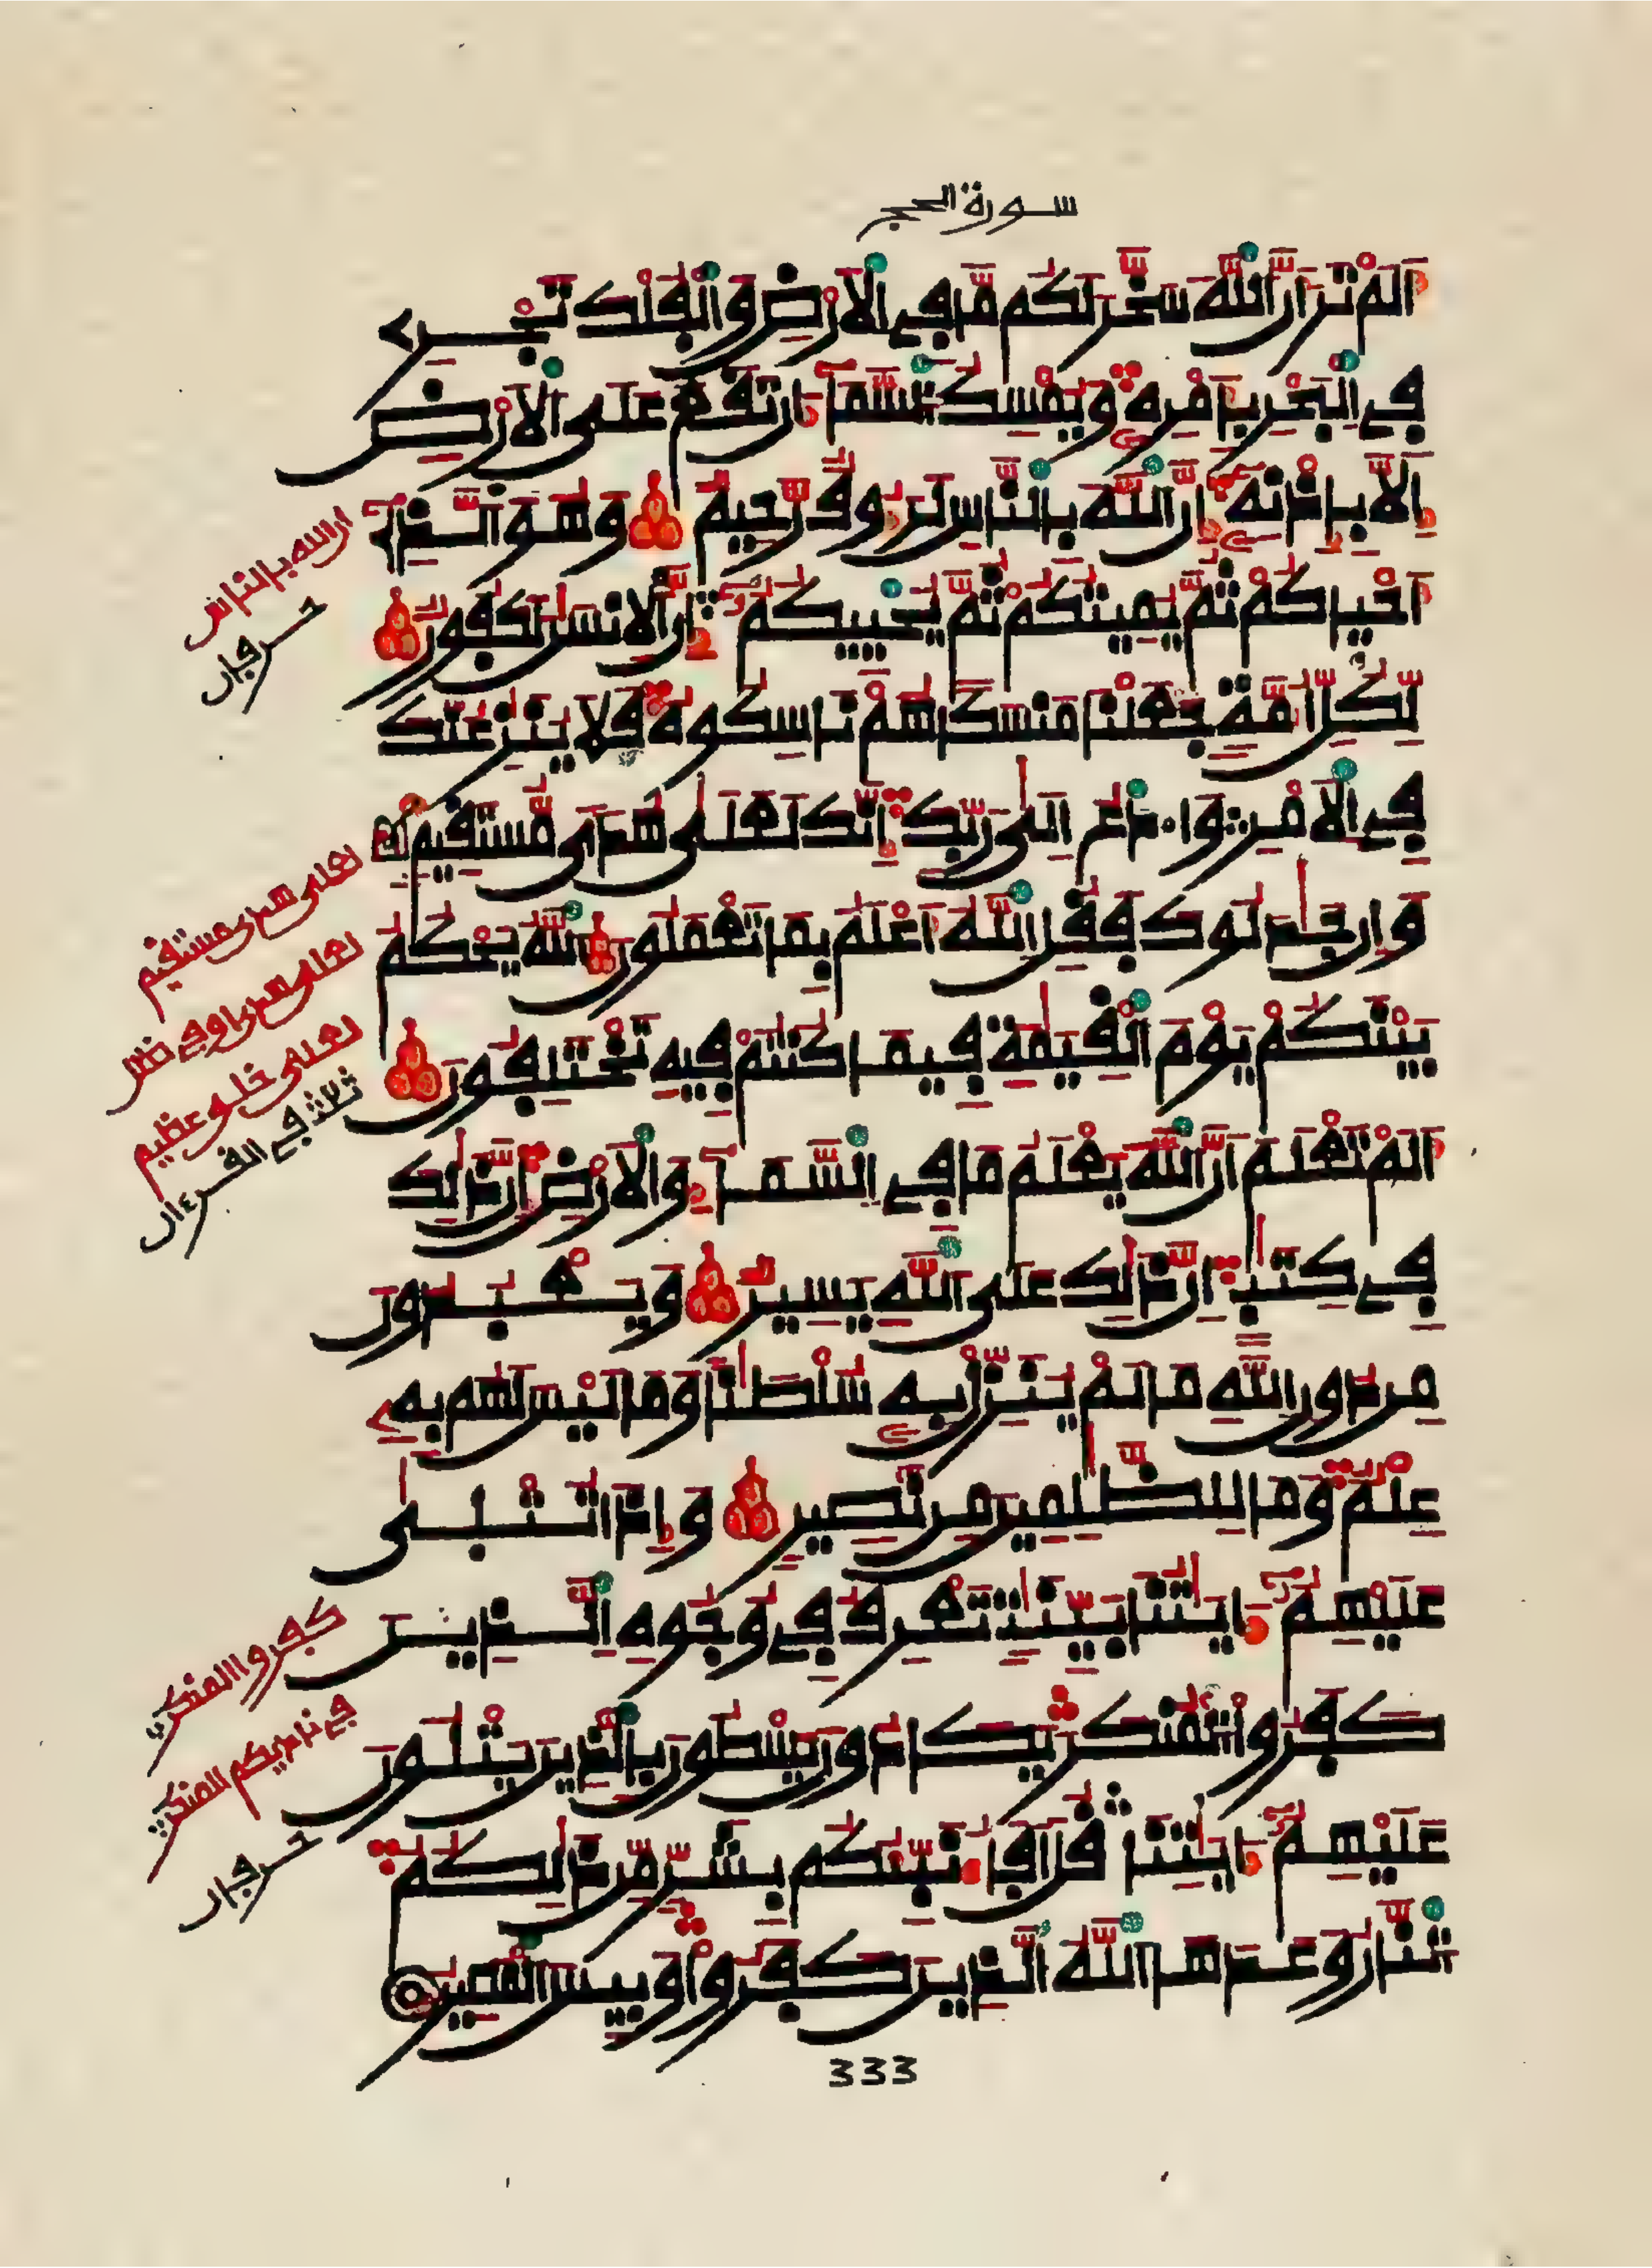 سورة الحج
اَلَمْ تَرَ أَنَّ اَللَّهَ سَخَّرَ لَكُم مَّا فِے اِلَارْضِ وَالْفُلْكَ تَجْرِے
فِے اِلْبَحْرِ بِأَمْرِهِۦ وَيُمْسِكُ اُلسَّمَآءَ اَن تَقَعَ عَلَى اَلَارْضِ
إِلَّا بِإِذْنِهِۦٓ إِنَّ اَللَّهَ بِالنَّاسِ لَرَءُوفٌ رَّحِيمٌ وَهُوَ اَلذِےٓ
أَحْيَاكُمْ ثُمَّ يُمِيتُكُمْ ثُمَّ يُحْيِيكُمُۥٓ إِنَّ اَلِانسَٰنَ لَكَفُورٌ
لِّكُلِّ أُمَّةٍ جَعَلْنَا مَنسَكاً هُمْ نَاسِكُوهُ فَلَا يُنَٰزِعُنَّكَ
فِے اِلَامْرِ وَادْعُ إِلَىٰ رَبِّكَ إِنَّكَ لَعَلَىٰ هُدىً مُّسْتَقِيمٍ
وَإِن جَٰدَلُوكَ فَقُلِ اِللَّهُ أَعْلَمُ بِمَا تَعْمَلُونَ اَللَّهُ يَحْكُمُ
بَيْنَكُمْ يَوْمَ اَلْقِيَٰمَةِ فِيمَا كُنتُمْ فِيهِ تَخْتَلِفُونَ
أَلَمْ تَعْلَمَ اَنَّ اَللَّهَ يَعْلَمُ مَا فِے اِلسَّمَآءِ وَالَارْضِ إِنَّ ذَٰلِكَ
فِے كِتَٰبٍ اِنَّ ذَٰلِكَ عَلَى اَللَّهِ يَسِيرٌ وَيَعْبُدُونَ
مِن دُونِ اِللَّهِ مَا لَمْ يُنَزِّلْ بِهِۦ سُلْطَٰناً وَمَا لَيْسَ لَهُم بِهِۦ
عِلْمٌ وَمَا لِلظَّٰلِمِينَ مِن نَّصِيرٍ وَإِذَا تُتْلَىٰ
عَلَيْهِمُۥٓ ءَايَٰتُنَا بَيِّنَٰتٍ تَعْرِفُ فِے وُجُوهِ اِلذِينَ
كَفَرُوا اُلْمُنكَرَ يَكَادُونَ يَسْطُونَ بِالذِينَ يَتْلُونَ
عَلَيْهِمُۥٓ ءَايَٰتِنَا قُلَ اَفَأُنَبِّئُكُم بِشَرٍّ مِّن ذَٰلِكُمُ
اُلنَّارُ وَعَدَهَا اَللَّهُ اُلذِينَ كَفَرُوا وَبِيسَ اَلْمَصِيرُ
ان الله بالناس
حرفان
لعلى هدى مستقيم
لعلى هدى او في ضلال
لعلى خلق عظيم
ثلاثة في القرءان
كفروا المنكر
في ناديكم المنكر
حرفان
333